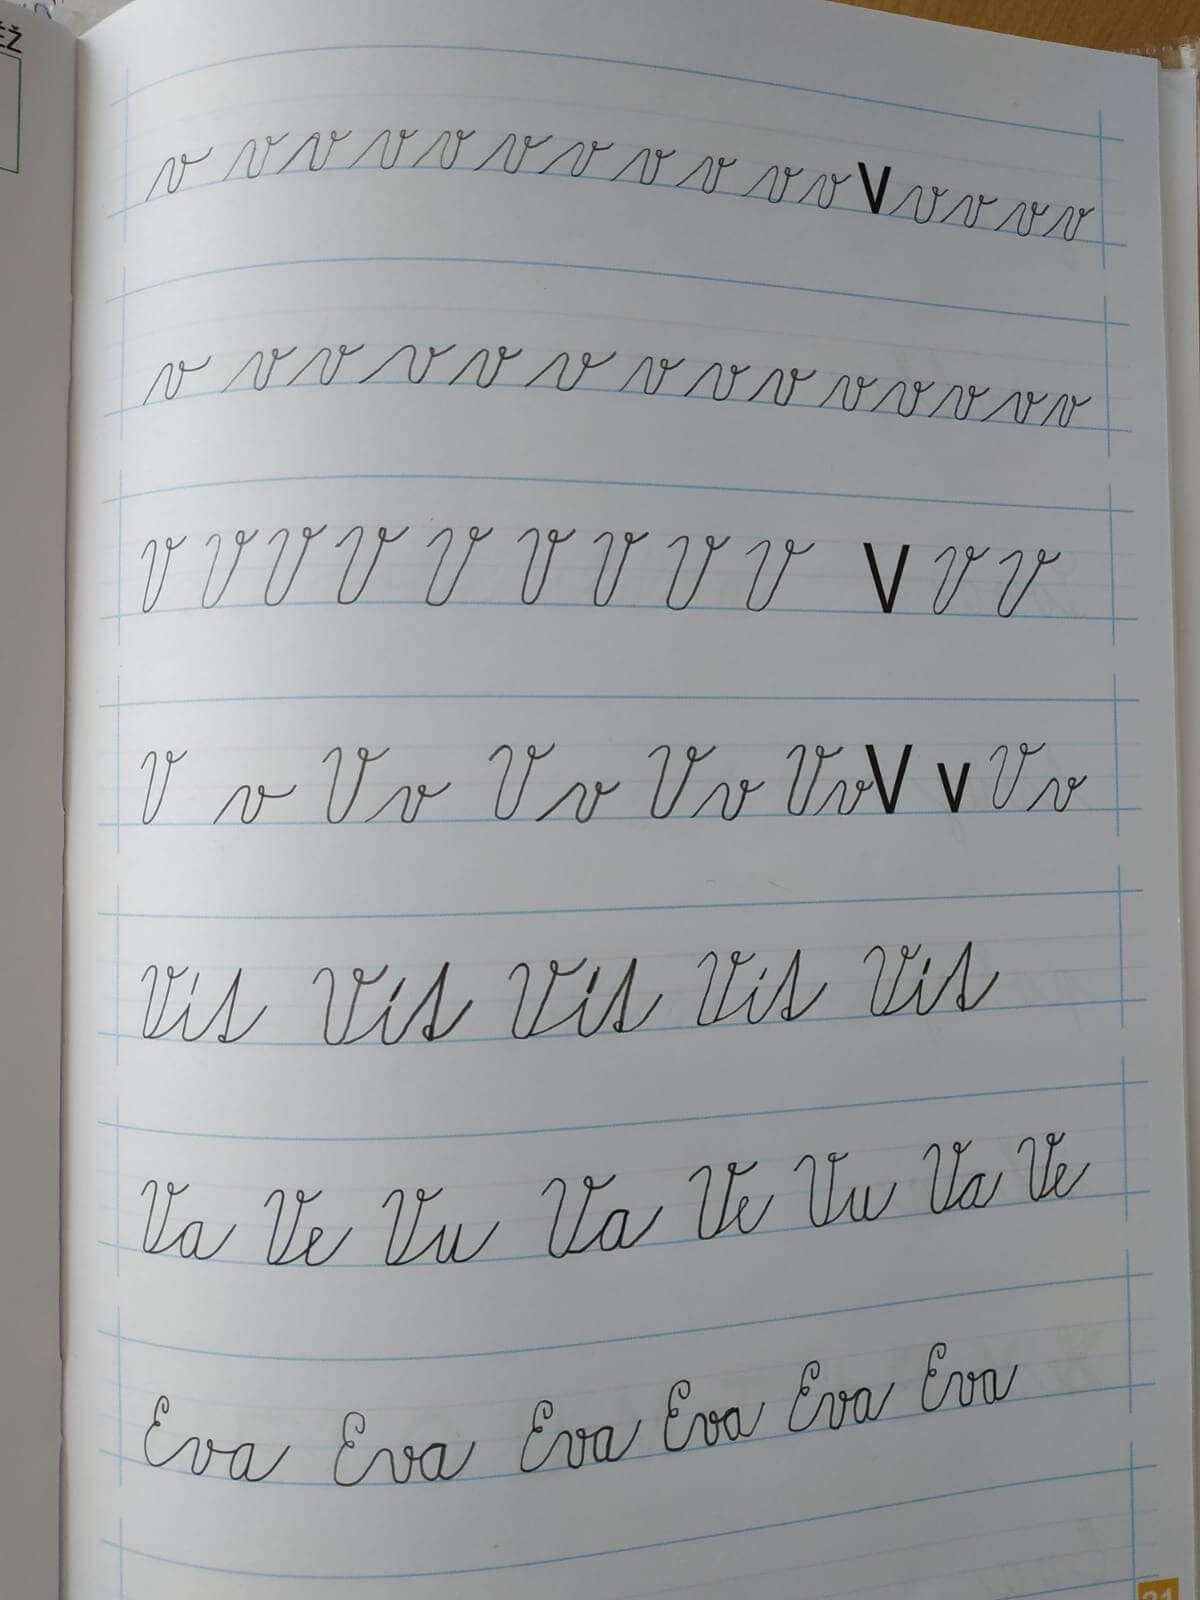 v v v v v v v v v v v V v v v v
v v v v v v v v v v v v v v
V V V V V V V V V V V V
V v V v V v V v V v V v V v
Vís Vís Vís Vís Vís
Va Ve Vu Va Ve Vu Va Ve
Eva Eva Eva Eva Eva Eva
21